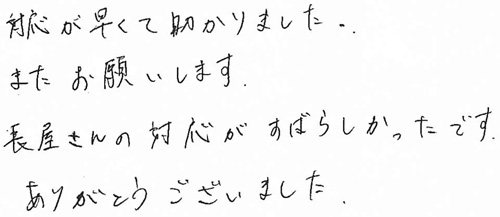 対応が早くて助かりました..
またお願いします.
長屋さんの対応がすばらしかったです.
ありがとうございました.